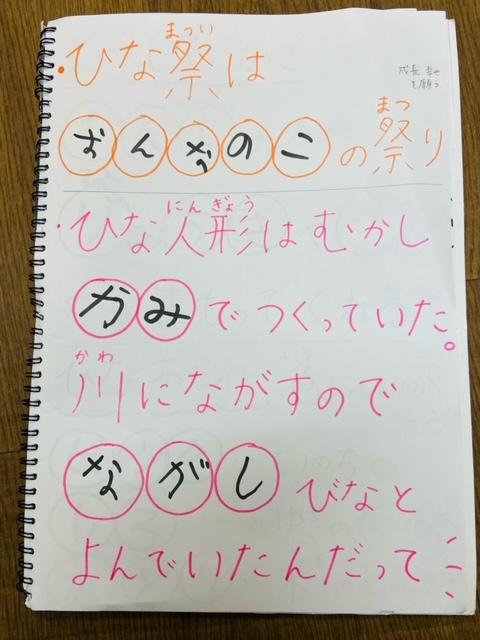 ・ひな祭は
まつり
成長、幸せ
を願う
おんなのこの祭り
まつ
・ひな人形はむかし
にんぎょう
かみでつくっていた。
川にながすので
かわ
ながしびなと
よんでいたんだって